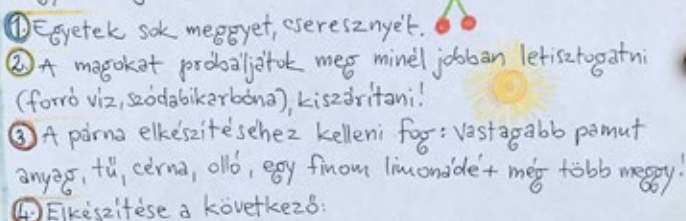 1. Egyetek sok meggyet, cseresznyét.
2. A magokat próbáljátok meg minél jobban letisztogatni
(forró víz, szódabikarbóna), kiszárítani!
3. A párna elkészítéséhez kelleni fog: vastagabb pamut
anyag, tű, cérna, olló, egy finom limonádé + még több meggy!
4. Elkészítése a következő: